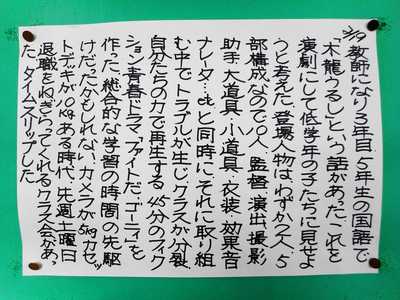 3/19 教師になり3年目5年生の国語で
「木龍うるし」という話があった。これを
演劇にして低学年の子たちに見せよ
うと考えた。登場人物はわずか2人 5
部構成なので10人 監督 演出 撮影
助手 大道具・小道具・衣装・効果音
ナレータ…etcと同時に、それに取り組
む中でトラブルが生じ、クラスが分裂。
自分たちの力で再生する45分のフィク
ション青春ドラマ「ファイトだ、ゴーティ」を
作った。総合的な学習の時間の先駆
けだったかもしれない。カメラが5kgカセッ
トデッキが10kgある時代。先週土曜日
退職をねぎらってくれるクラス会があっ
た。タイムスリップした